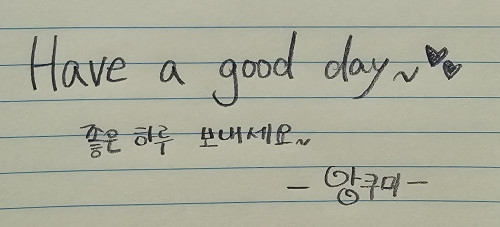 Have a good day~ ♥♥
좋은 하루 보내세요~
- 앙쿠미 -